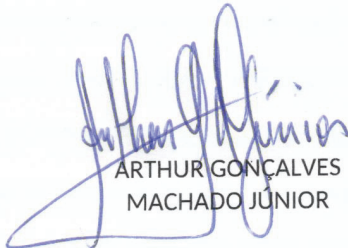 Arthur G Júnior
ARTHUR GONÇALVES
MACHADO JÚNIOR